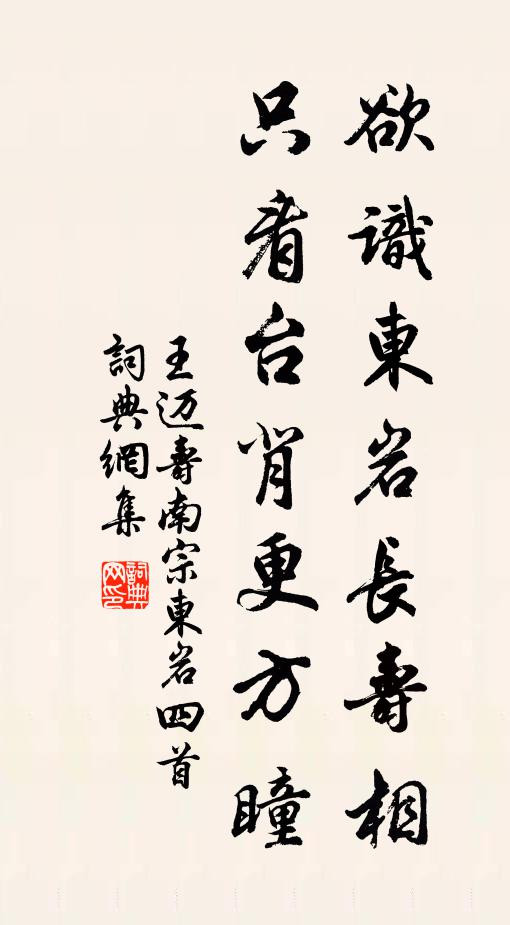 欲識東岩長壽相
只看台背更方瞳
王迈壽南宗東岩四首
詞典網集
詞典网印